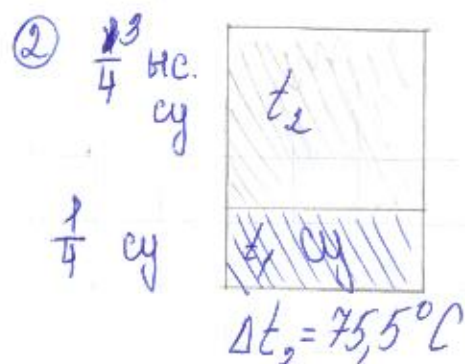 ② 3/4 ыс.
су
t₂
1/4 су
t₁ су
Δt₂ = 75,5°C